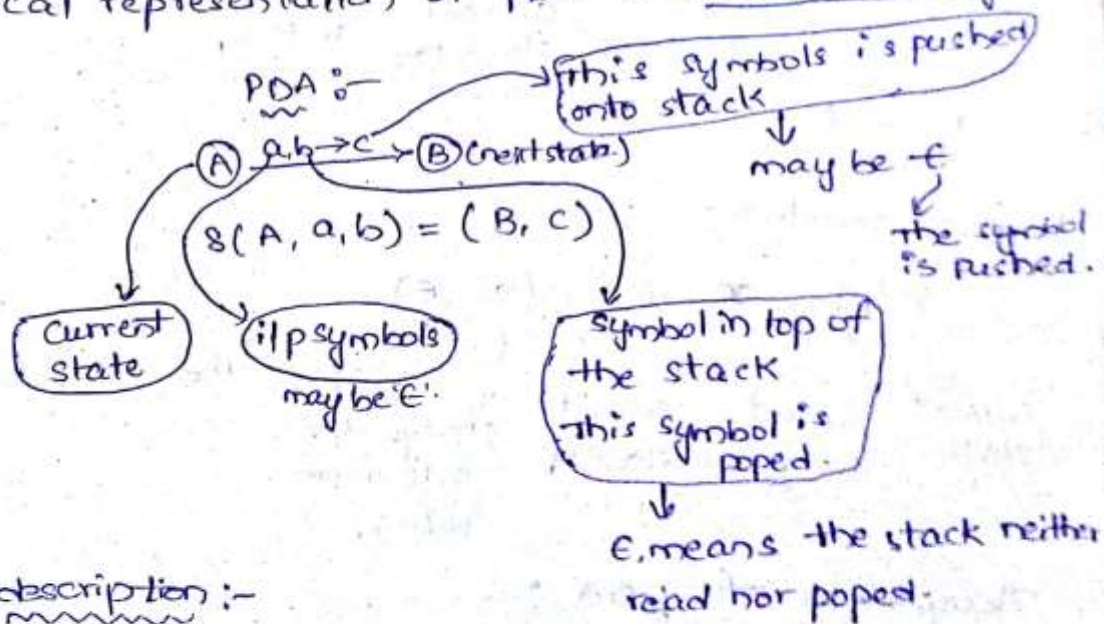 cal representation of
PDA :-
This symbols is pushed
onto stack
may be ϵ
The symbol
is pushed.
A a,b→c B (next state.)
δ(A, a,b) = (B, c)
Current
state
i/p symbols
may be 'ϵ'.
symbol in top of
the stack
This symbol is
poped.
ϵ, means the stack neither
read nor poped.
description :-